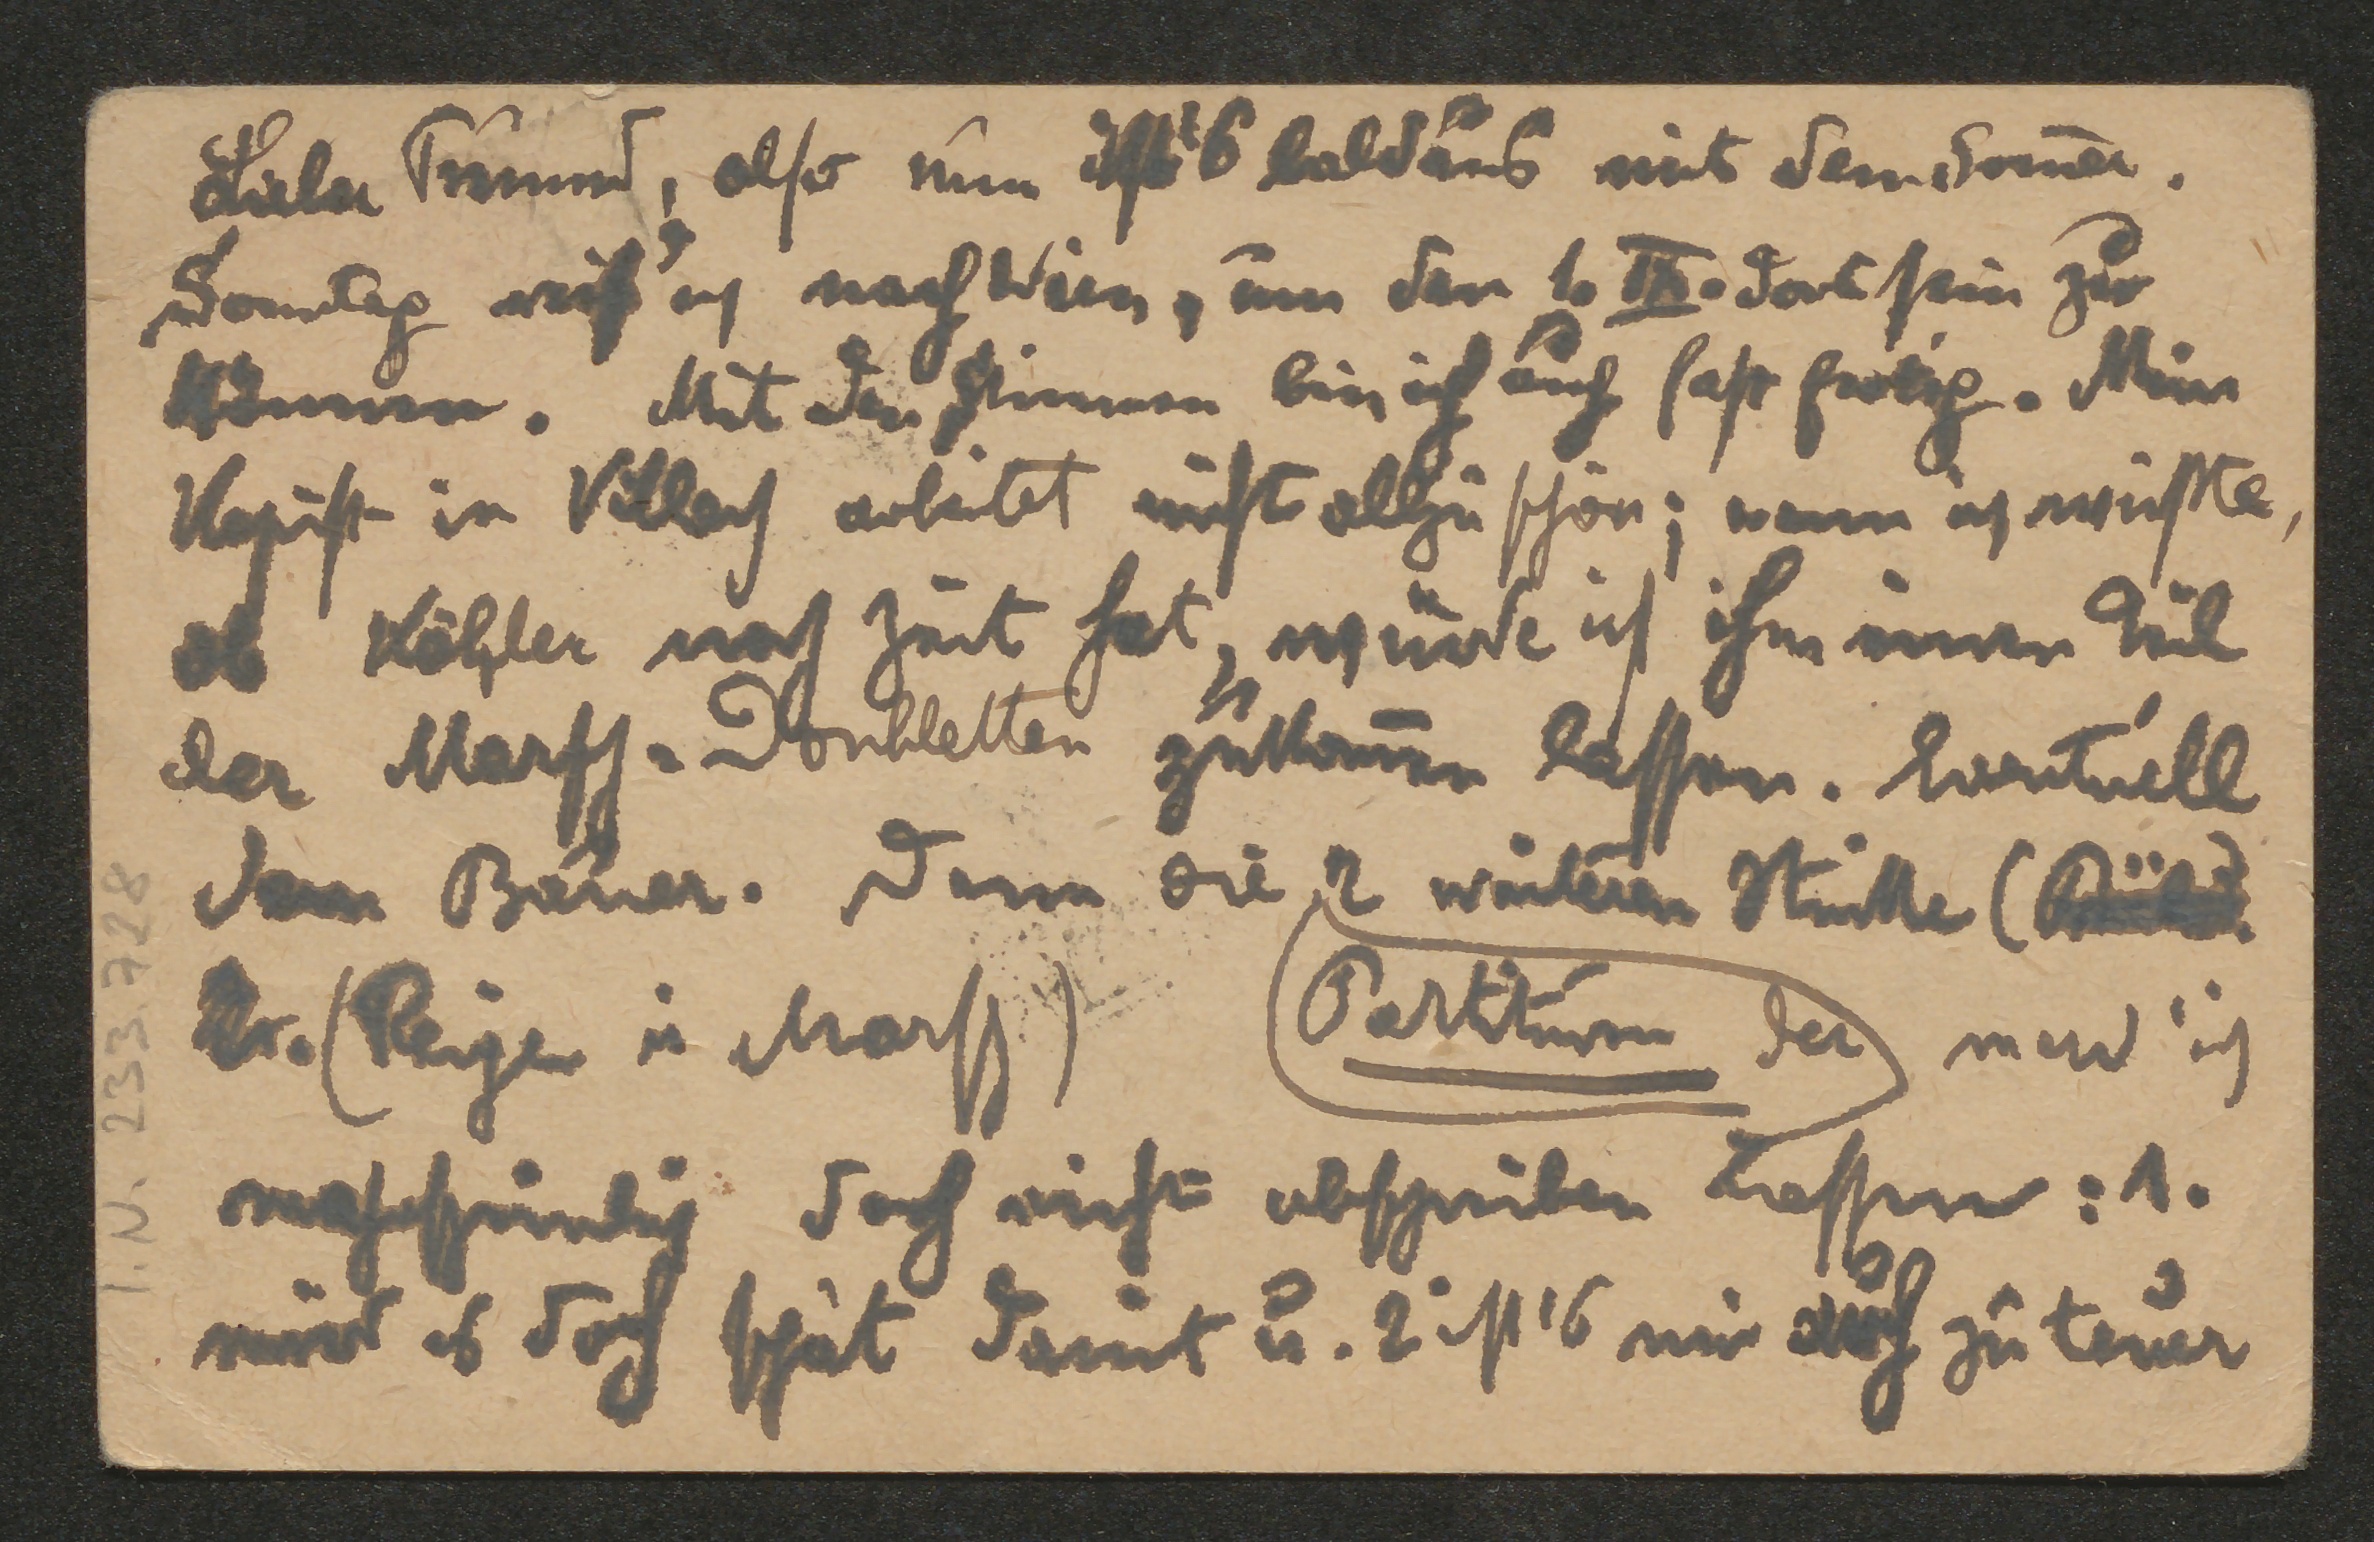 Lieber Freund, also nun ist's bald aus mit dem Som̄er.
Sonntag reis' ich nach Wien, um den 1. IX. dort sein zu
können. Mit den Stimmen bin ich auch fast fertig. Mein
Kopist in Villach arbeitet nicht allzu schön; wenn ich wüsste,
ob Köhler noch Zeit hat, würde ich ihm einen Teil
der Marsch-Doubletten zukom̄en lassen. Eventuell
dem Bauer. Denn die 2 weiteren Stücke (
Nr. (Reigen u Marsch) Partituren der werd' ich
wahrscheinlich doch nicht abschreiben lassen: 1.
wird es doch spät damit u. 2 ist's mir auch zu teuer
I.N. 233.728